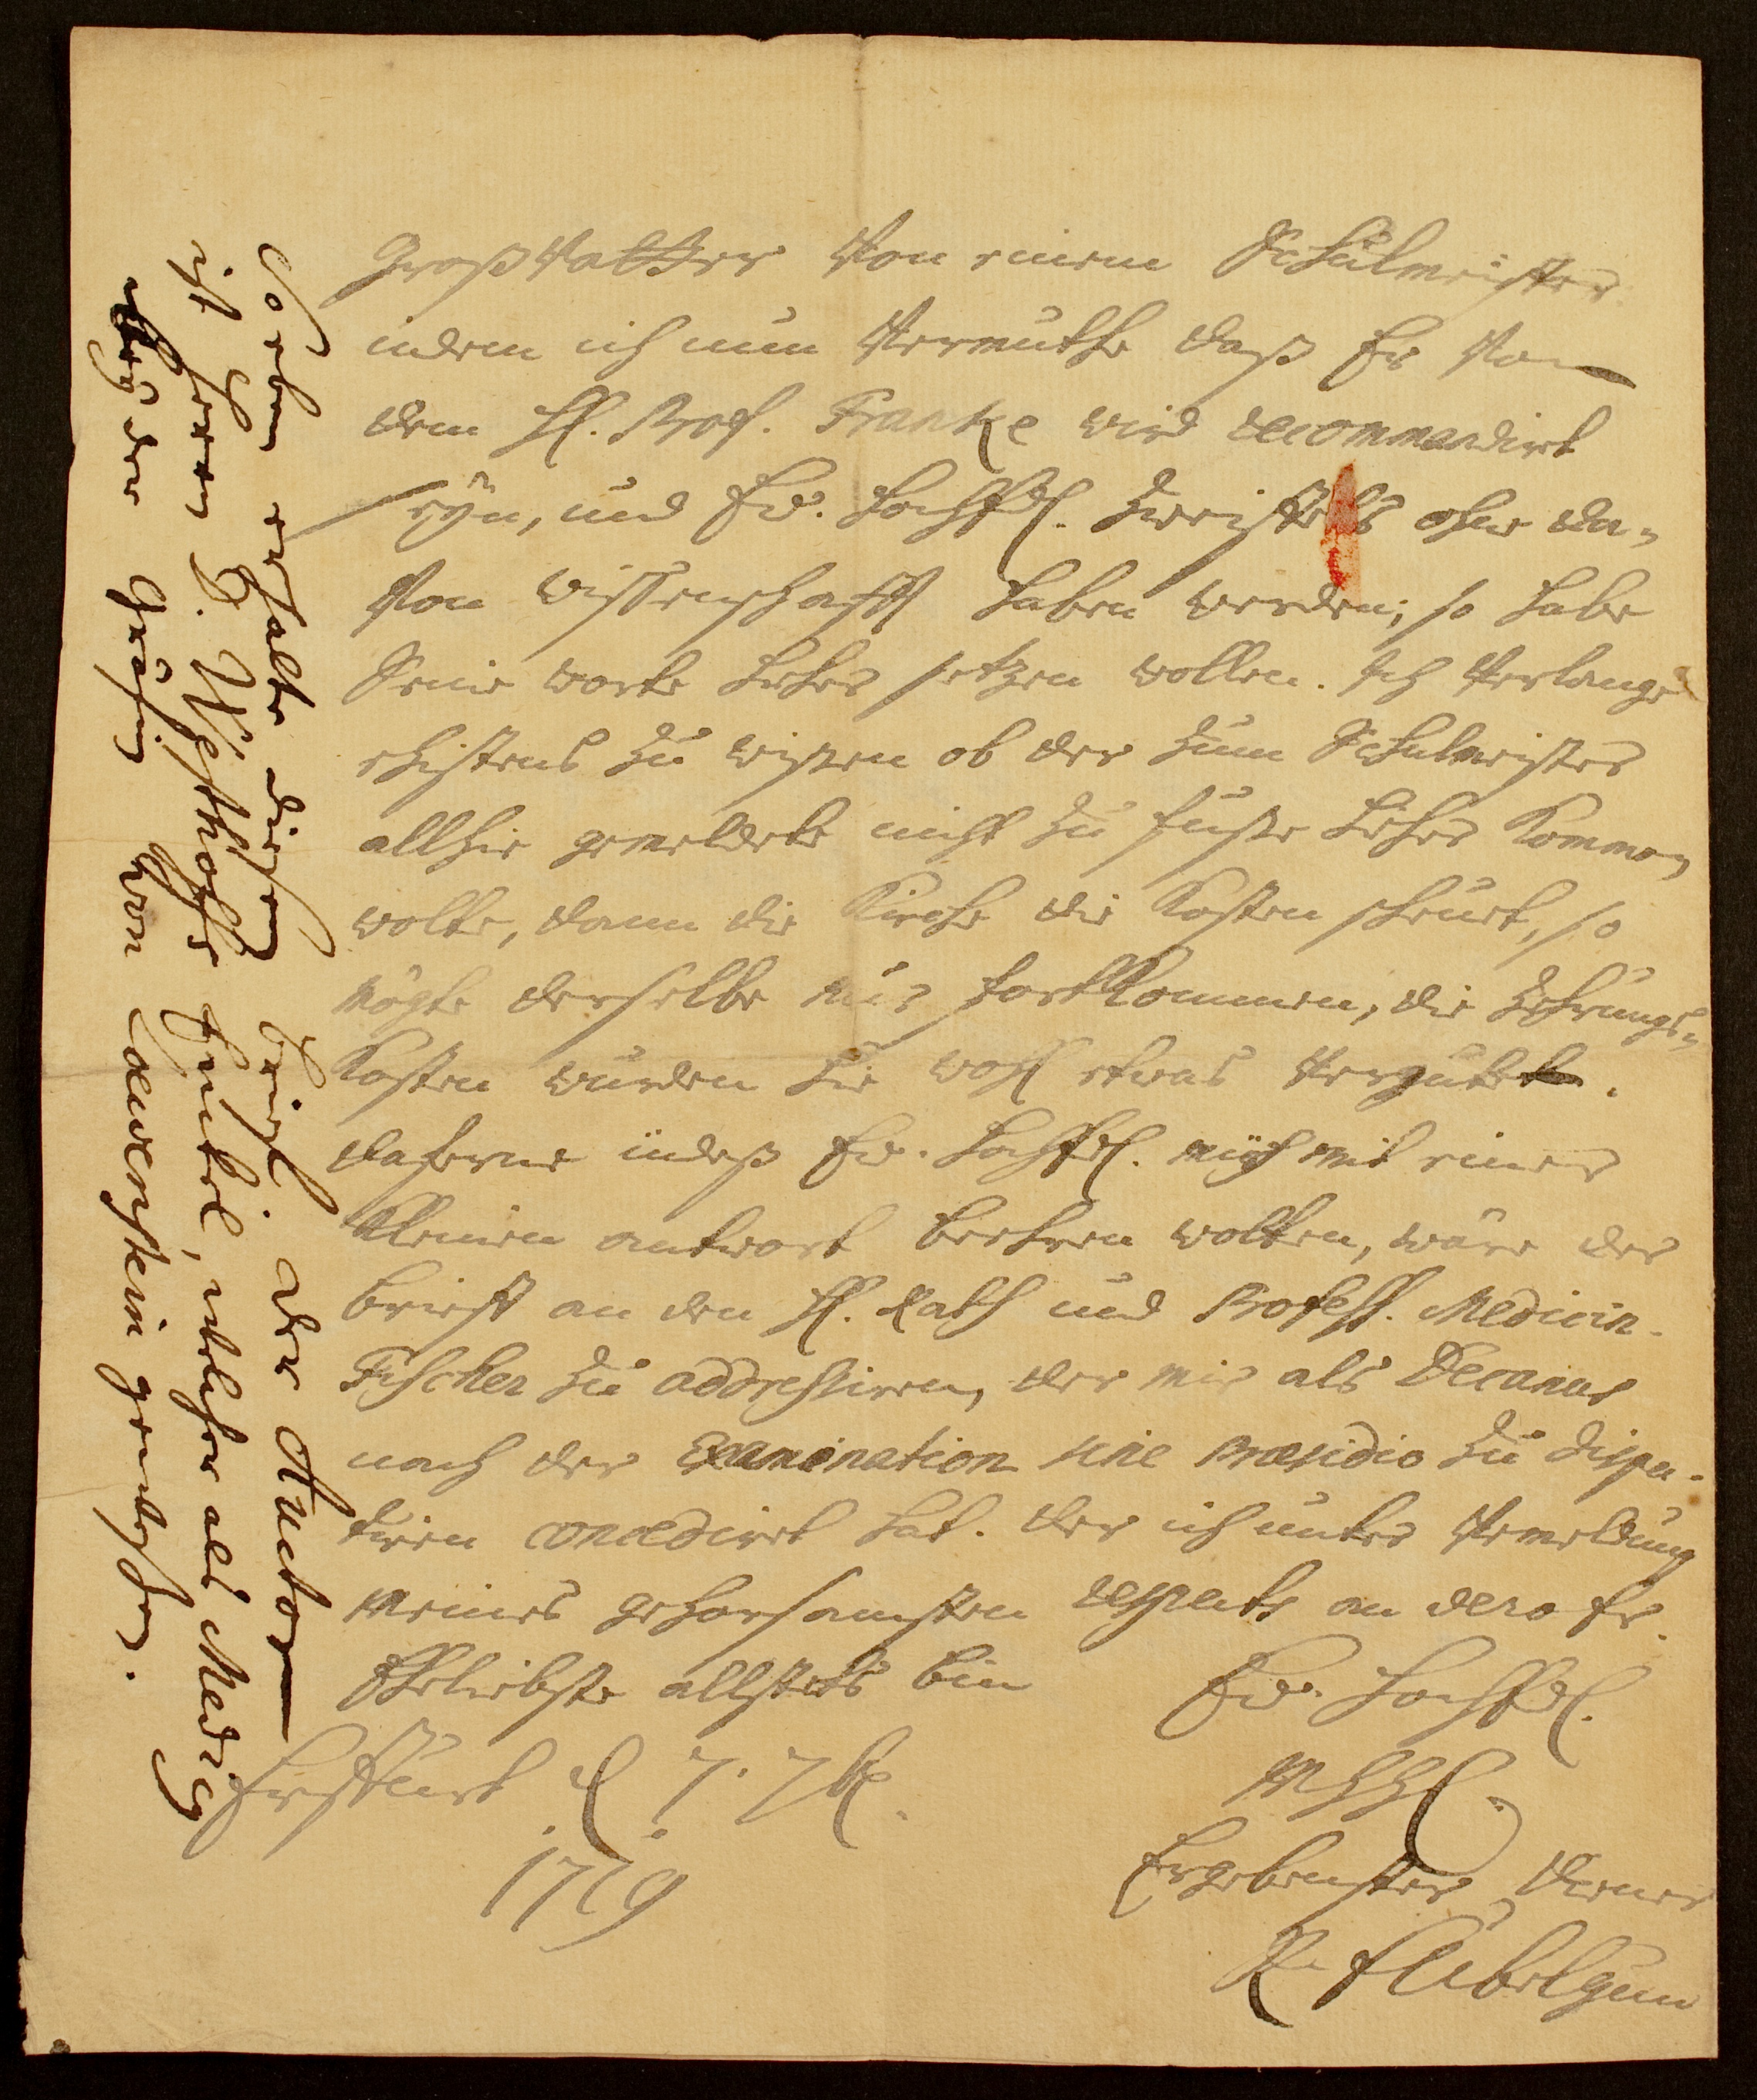 Großvatter von einem Schulmeister
indem ich nun vermuthe daß Er von
dem H. Prof. Franke wird recommandirt
seÿn, und Ew. HochEdl. Zweiffels ohne da-
von wissenschafft haben werden; so habe
Seine worte hieher setzen wollen. Ich verlange
ehistens zu wißen ob der zum Schulmeister
allhie gemeldete nicht zu fuße hieher kommen
wolte, dann die Kirche die Kosten scheuet, so
mögte derselbe nur fortkommen, die Zehrungs-
Kosten würden hie wohl etwas vergütet.
daferne indeß Ew. HochEdl. mich mit einer
kleinen antwort beehren wolten, wäre der
brieff an den H. Rath und Profess. Medicin.
Fischer zu addressiren, der mir als Decanus
nach der Examination sine Præsidio zu dispu-
tiren concedirt hat. der ich unter vermeldung
meines gehorsamsten respects an dero Fr.
Eheliebste allstets bin Ew. HochEdl.
Erffurt d. 7. 7br. MHHl.
1719 Ergebenster Diener
Übelgün
So eben erhalte diesen brief. der Auctor
ist Herrn D. Westhofs Enckel, welcher als Medicq
beÿ der Gräfin von Lewenstein gewesen.